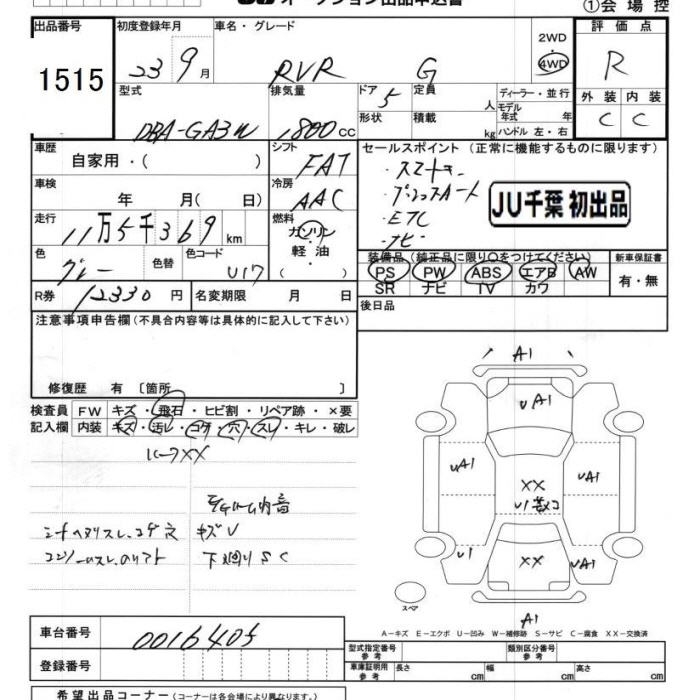 オークション出品申込書
①会場控
出品番号 初度登録年月 車名・グレード 評価点
1515 23 9月 RVR G 2WD 4WD R
型式 排気量 ドア 定員 ディーラー・並行 外装 内装
DBA-GA3W 1800cc 5 人 モデル年式 年 C C
形状 積載 kg ハンドル 左・右
車歴 シフト セールスポイント (正常に機能するものに限ります)
自家用・( ) FAT ・スマートキー
車検 冷房 ・プッシュスタート
年 月( 日) AAC ・ETC JU千葉 初出品
走行 燃料 ・ナビ
11万5千369km ガソリン・軽油・( )
色 色替 色コード 装備品 (純正品に限り○をつけてください) 新車保証書
グレー U17 PS PW ABS エアB AW 有・無
SR ナビ TV カワ
R券 12330円 名変期限 月 日 後日品
注意事項申告欄(不具合内容等は具体的に記入して下さい)
修復歴 有〔箇所 〕
検査員 FW キズ・飛石・ヒビ割・リペア跡・×要
記入欄 内装 キズ・汚レ・コゲ・穴・スレ・キレ・破レ
キズU
下廻りSC
A1
UA1
UA1 XX UA1
U1
U1 XX UA1
スペア
A1
A-キズ E-エクボ U-凹み W-補修跡 S-サビ C-腐食 XX-交換済
車台番号 0016405
登録番号
型式指定番号 参考 類別区分番号 参考
車庫証明用 参考 長さ cm 幅 cm 高さ cm
希望出品コーナー(コーナーは各会場により異なります。)